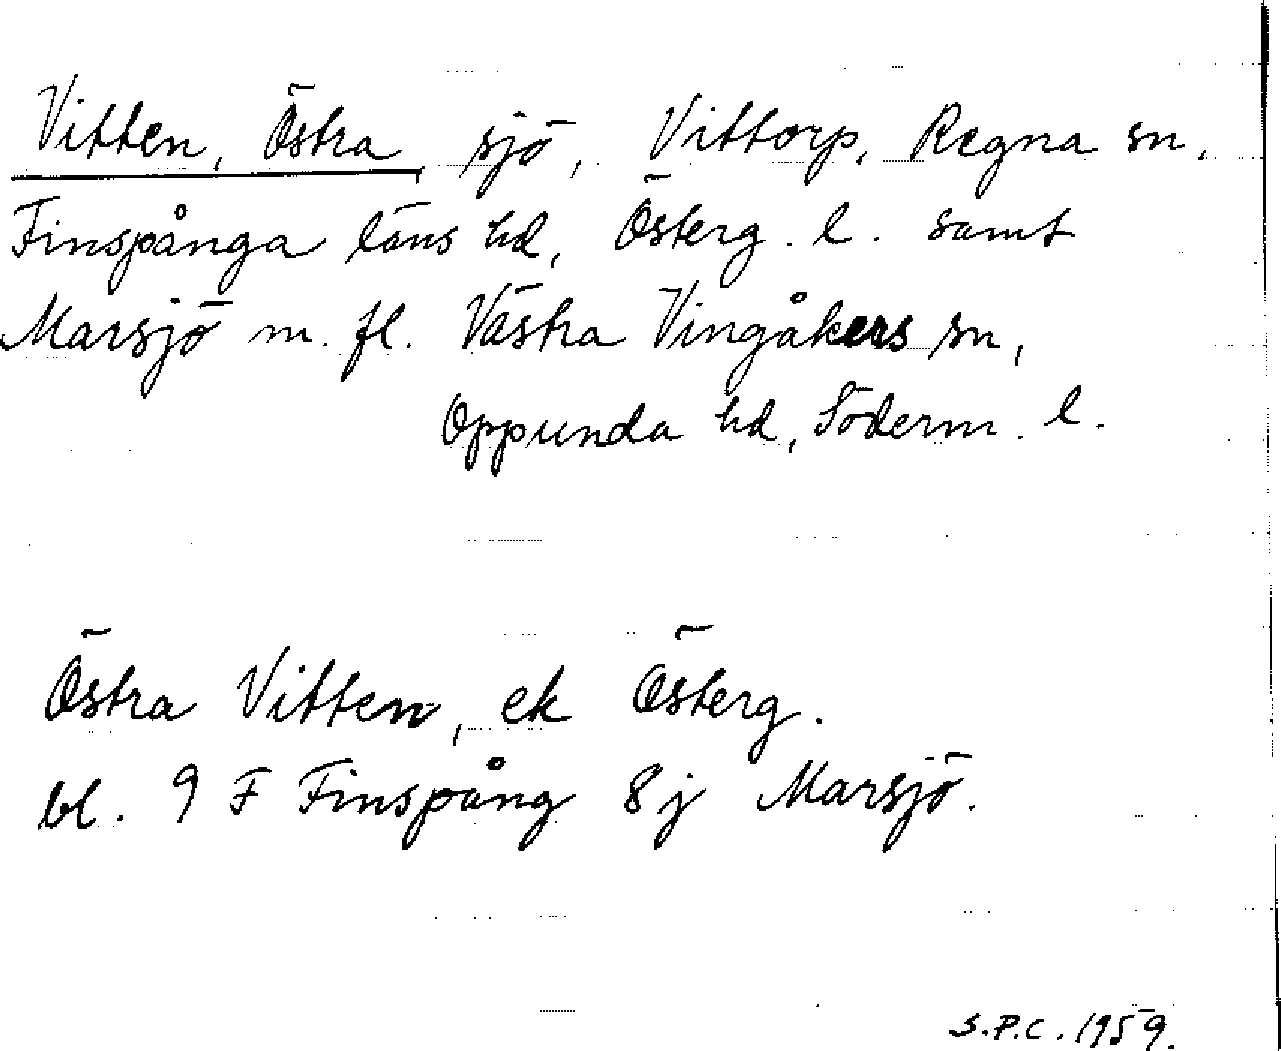 Vitten, Östra, sjö, Vittorp, Regna sn,
Finspånga läns hd, Österg. l. samt
Marsjö m. fl. Västra Vingåkers sn,
Oppunda hd, Söderm. l.
Östra Vitten, ek Österg.
bl. 9 F Finspång 8 j Marsjö.
S.P.C. 1959.